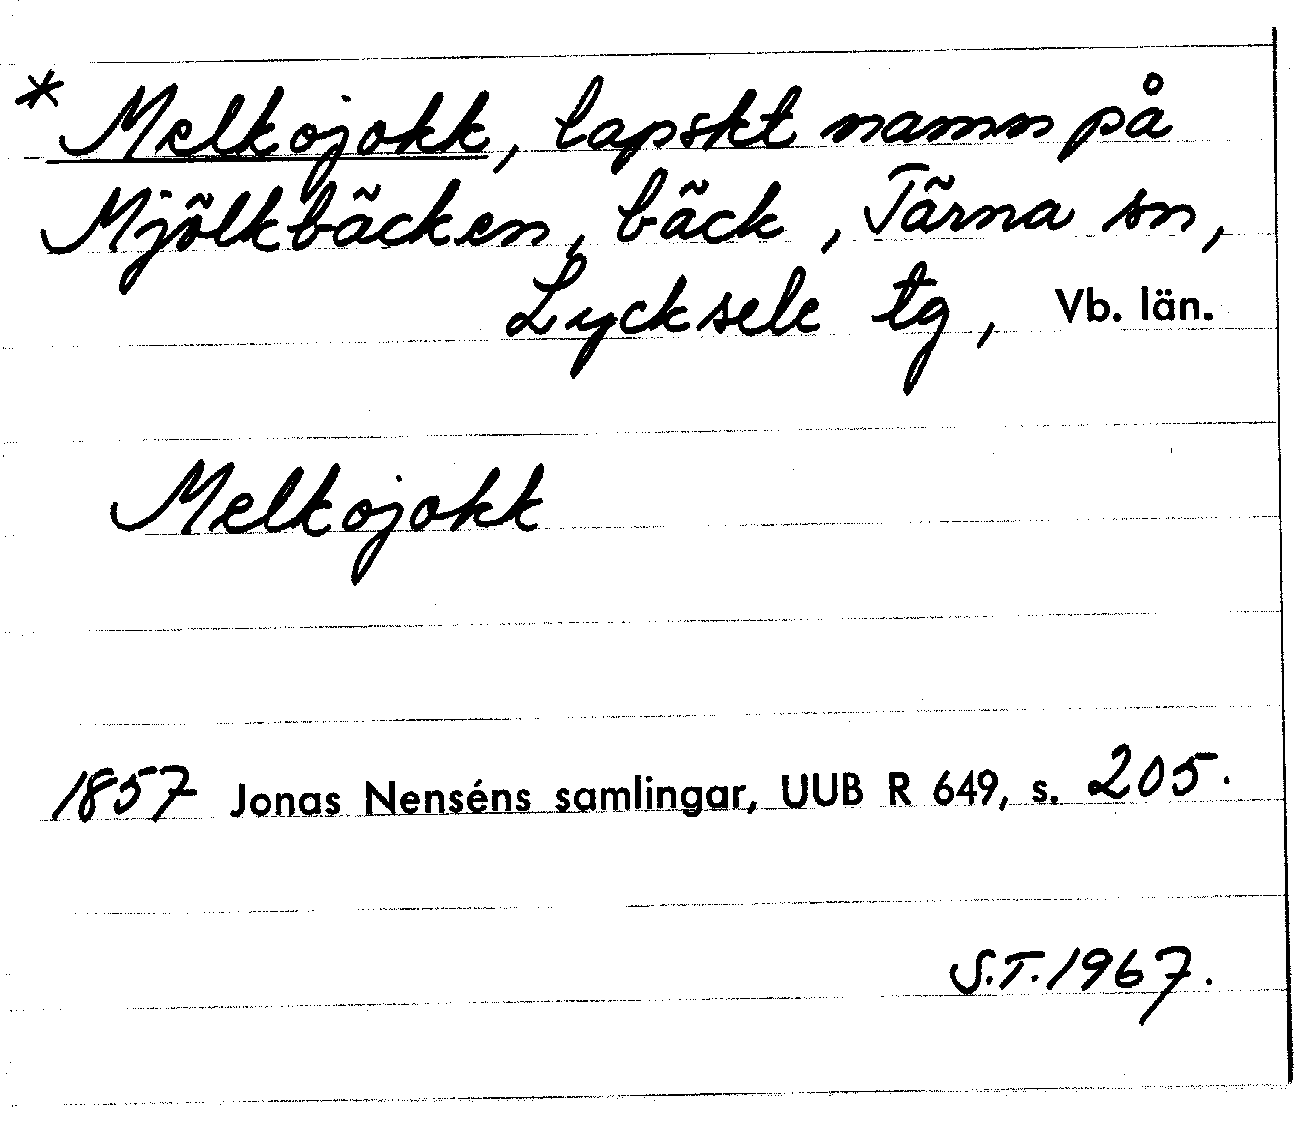 * Melkojokk, lapskt namn på
Mjölkbäcken, bäck, Tärna sn,
Lycksele tg, Vb. län.
Melkojokk
1857 Jonas Nenséns samlingar, UUB R 649, s. 205.
S.T. 1967.